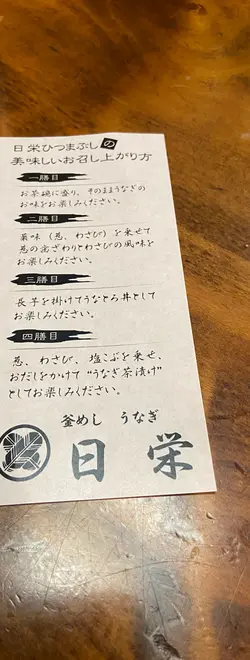 日栄ひつまぶしの
美味しいお召し上がり方
一膳目
お茶碗に盛り、そのままうなぎの
お味をお楽しみください。
二膳目
薬味（葱、わさび）を乗せて
葱の歯ざわりとわさびの風味を
お楽しみください。
三膳目
長芋を掛けてうなとろ丼として
お楽しみください。
四膳目
葱、わさび、塩こぶを乗せ、
おだしをかけて“うなぎ茶漬け”
としてお楽しみください。
釜めし うなぎ
日栄